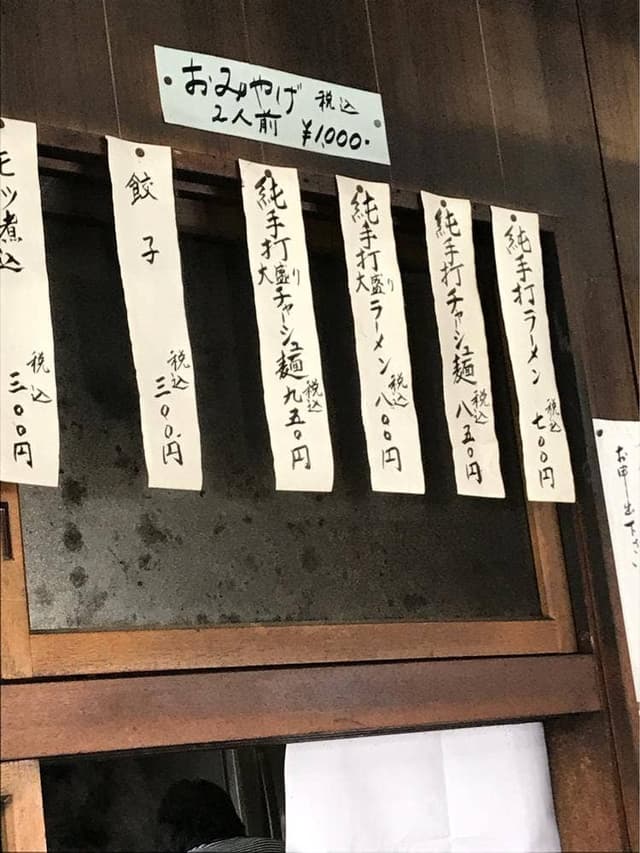 おみやげ 税込
2人前 ¥1,000.
純手打ラーメン 税込 七〇〇円
純手打チャーシュ麺 税込 八五〇円
純手打大盛りラーメン 税込 八〇〇円
純手打大盛りチャーシュ麺 税込 九五〇円
餃子 税込 三〇〇円
モツ煮込 税込 三〇〇円
お申出下さい